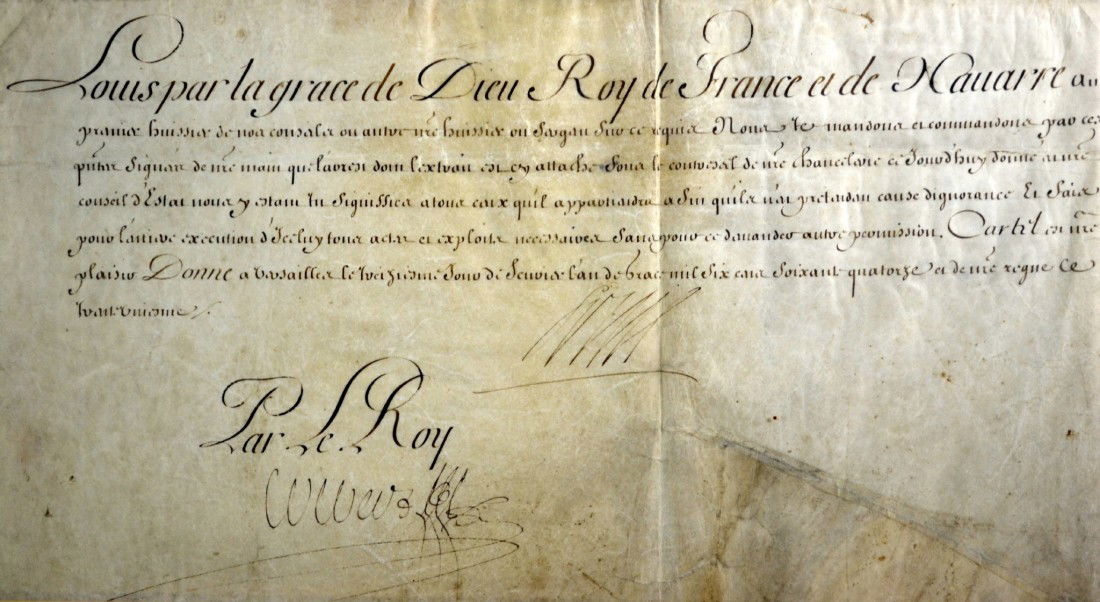 Louis par la grace de Dieu Roy de France et de Nauarre Au
premier huissier de nos conseils ou autre nre huissier ou sergent sur ce requis Nous te mandons et commandons par ces
pntes signées de nre main que l'arrest dont l'extrait est cy attaché sous le contrescel de nre chancelerie ce jourd'huy donné en nre
conseil d'Estat nous y estant tu signiffies a tous ceux qu'il appartiendra a fin qu'ils n'en pretendent cause d'ignorance Et fais
pour l'entiere execution d'Iceluy tous actes et exploits necessaires sans pour ce demander autre permission. Car tel est nre
plaisir Donné a Versailles le jour de l'an de grace mil six cens soixante quatorze et de nre regne le
Louis
Par Le Roy
Colbert